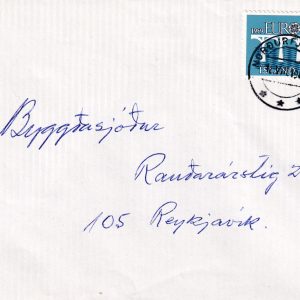 1984 EUROPA
ÍSLAND
Byggðasjóður
Rauðarárstíg 2
105 Reykjavík.